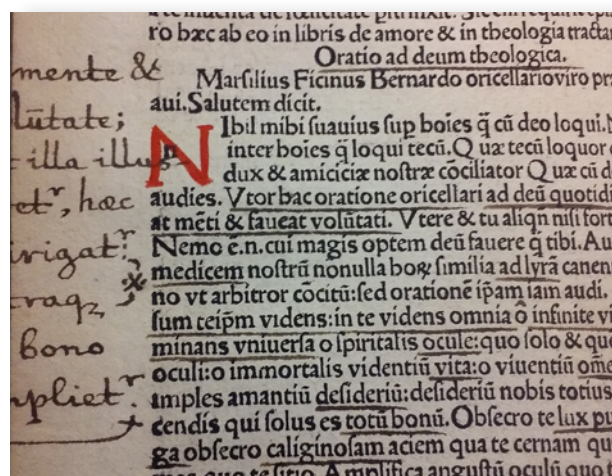 ro hæc ab eo in libris de amore & in theologia tractan
Oratio ad deum theologica.
Marsilius Ficinus Bernardo oricellario viro præ
aui. Salutem dicit.
NIhil mihi suauius sup hoies q̃ cũ deo loqui. N
inter hoies q̃ loqui tecũ. Quæ tecũ loquor
dux & amiciciæ nostræ cõciliator Quæ cũ d
audies. Vtor hac oratione oricellari ad deũ quotid
at mẽti & faueat volũtati. Vtere & tu aliqñ nisi fort
Nemo ẽ.n. cui magis optem deũ fauere q̃ tibi. Au
medicem nostrũ nonulla hoꝝ similia ad lyrã canen
no vt arbitror cõcitũ: sed orationẽ ip̃am iam audi.
sum teip̃m videns: in te videns omnia õ infinite vi
minans vniuersa o spiritalis ocule: quo solo & que
oculi: o immortalis videntiũ vita: o viuentiũ om̃e
imples amantiũ desideriũ: desideriũ nobis totius
cendis qui solus es totũ bonũ. Obsecro te lux pu
ga obsecro caliginosam aciem qua te cernam qu
te sitio. Amplifica angustũ oculũ quo
mente &
lũtate;
illa illus
etʳ, hæc
irigatʳ:
traqꝫ
bono
mplietʳ.